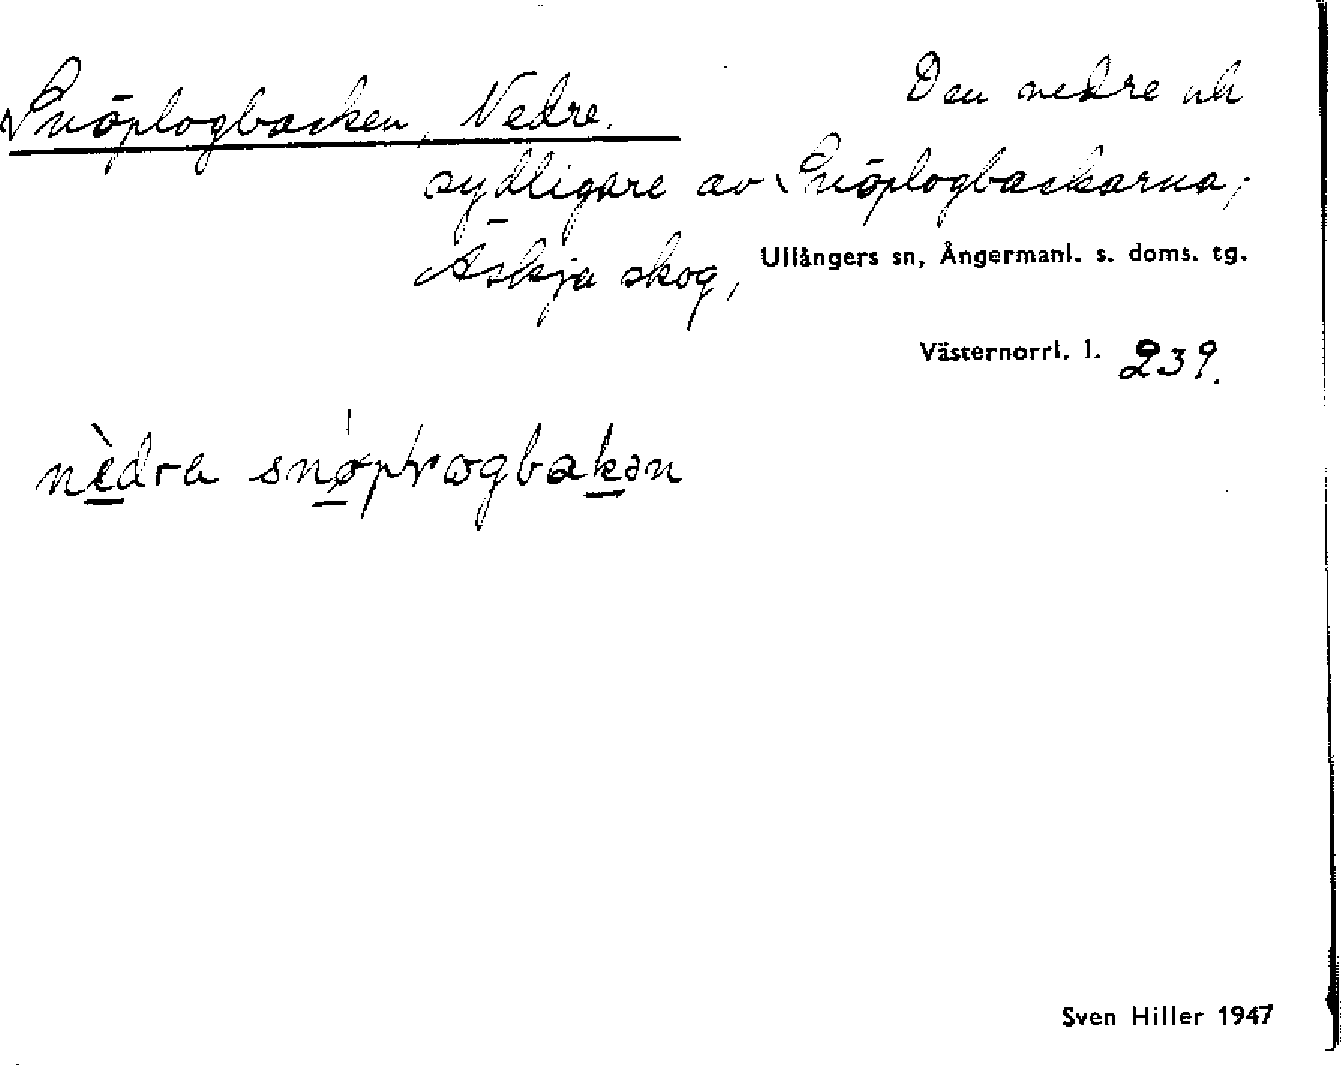 Snöplogbacken, Nedre.
Den nedre och
sydligare av Snöplogbackarna;
Äskja skog, Ullångers sn, Ångermanl. s. doms. tg.
Västernorrl. l. 239.
nèdra snøplogbakən
Sven Hiller 1947